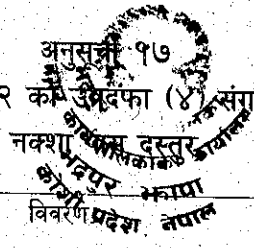 अनुसूची १७
२ को उपदफा (४) संग
नक्शा पास दस्तुर
विवरण
कार्यपालिकाको कार्यालय
भद्रपुर झापा
कोशी प्रदेश नेपाल